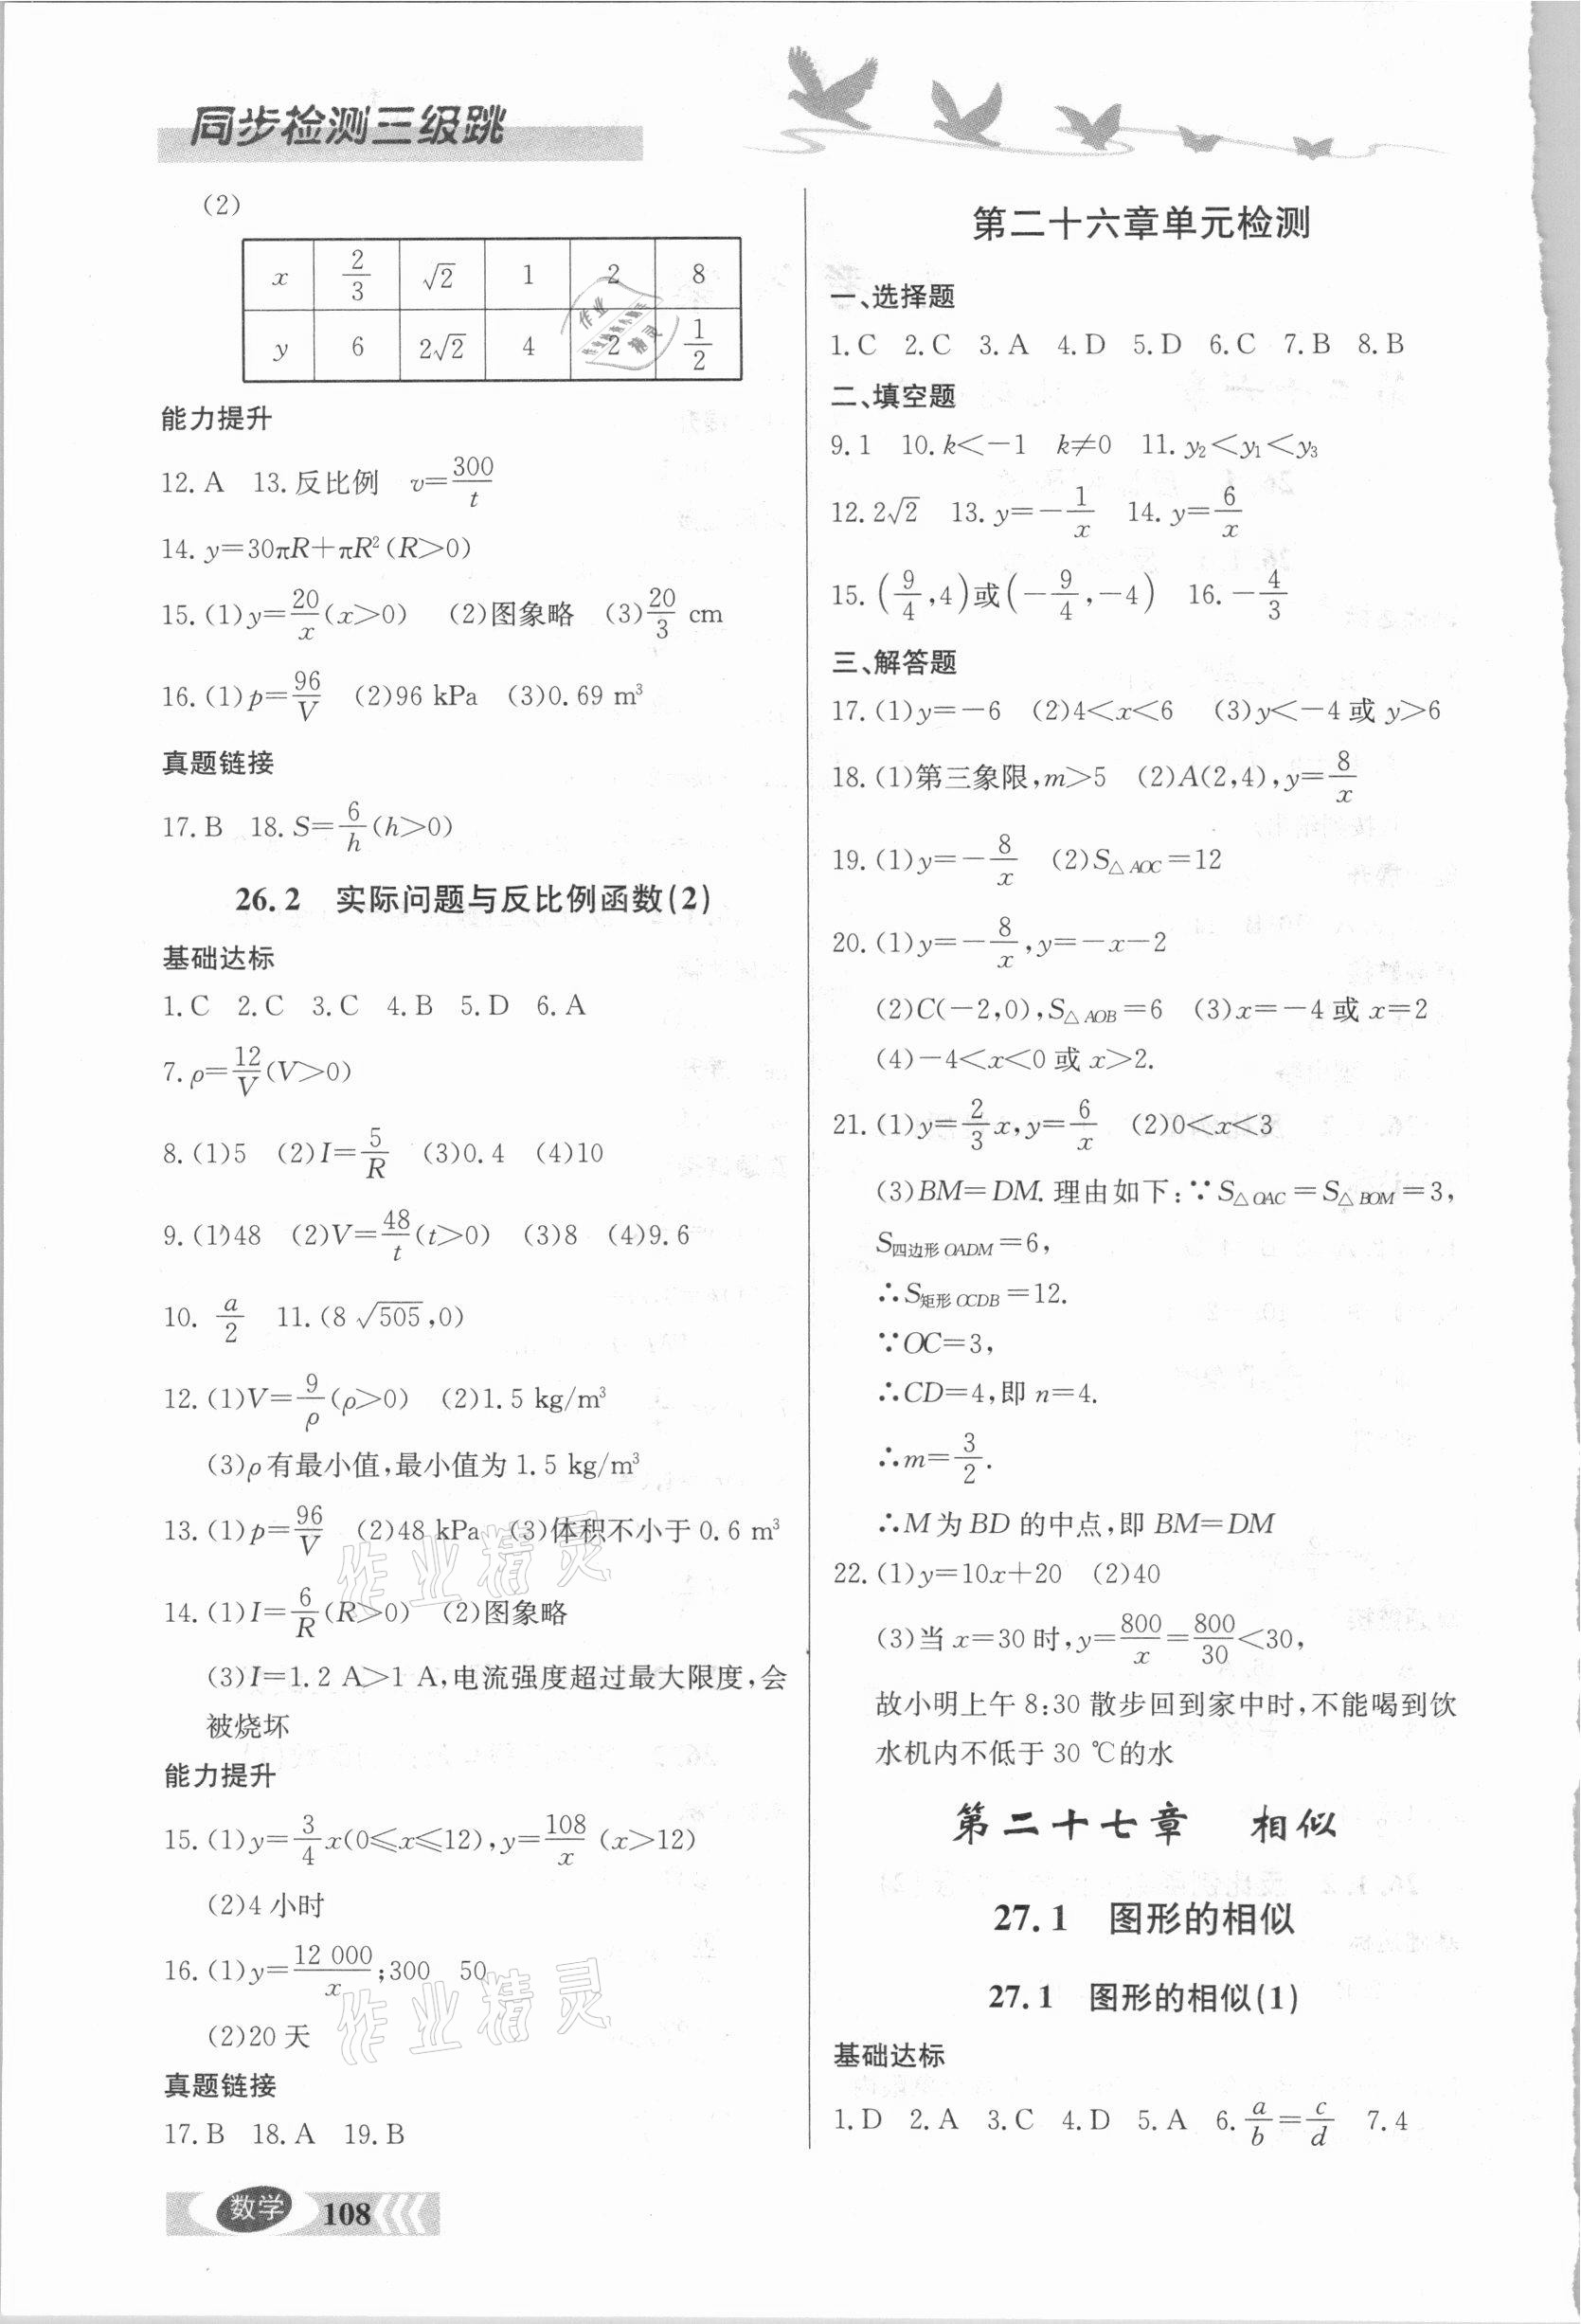 同步检测三级跳
(2)
x 2/3 √2 1 2 8
y 6 2√2 4 2 1/2
能力提升
12. A 13. 反比例 v=300/t
14. y=30πR+πR²(R>0)
15. (1)y=20/x(x>0) (2)图象略 (3)20/3 cm
16. (1)p=96/V (2)96 kPa (3)0.69 m³
真题链接
17. B 18. S=6/h(h>0)
26.2 实际问题与反比例函数(2)
基础达标
1. C 2. C 3. C 4. B 5. D 6. A
7. ρ=12/V(V>0)
8. (1)5 (2)I=5/R (3)0.4 (4)10
9. (1)48 (2)V=48/t(t>0) (3)8 (4)9.6
10. a/2 11. (8√505,0)
12. (1)V=9/ρ(ρ>0) (2)1.5 kg/m³
(3)ρ有最小值,最小值为1.5 kg/m³
13. (1)p=96/V (2)48 kPa (3)体积不小于0.6 m³
14. (1)I=6/R(R>0) (2)图象略
(3)I=1.2 A>1 A,电流强度超过最大限度,会
被烧坏
能力提升
15. (1)y=3/4x(0≤x≤12),y=108/x (x>12)
(2)4小时
16. (1)y=12 000/x;300 50
(2)20天
真题链接
17. B 18. A 19. B
数学 108
第二十六章单元检测
一、选择题
1. C 2. C 3. A 4. D 5. D 6. C 7. B 8. B
二、填空题
9. 1 10. k<-1 k≠0 11. y₂<y₁<y₃
12. 2√2 13. y=-1/x 14. y=6/x
15. (9/4,4)或(-9/4,-4) 16. -4/3
三、解答题
17. (1)y=-6 (2)4<x<6 (3)y<-4或y>6
18. (1)第三象限,m>5 (2)A(2,4),y=8/x
19. (1)y=-8/x (2)S△AOC=12
20. (1)y=-8/x,y=-x-2
(2)C(-2,0),S△AOB=6 (3)x=-4或x=2
(4)-4<x<0或x>2.
21. (1)y=2/3x,y=6/x (2)0<x<3
(3)BM=DM.理由如下:∵S△OAC=S△BOM=3,
S四边形OADM=6,
∴S矩形OCDB=12.
∵OC=3,
∴CD=4,即n=4.
∴m=3/2.
∴M为BD的中点,即BM=DM
22. (1)y=10x+20 (2)40
(3)当x=30时,y=800/x=800/30<30,
故小明上午8:30散步回到家中时,不能喝到饮
水机内不低于30 ℃的水
第二十七章 相似
27.1 图形的相似
27.1 图形的相似(1)
基础达标
1. D 2. A 3. C 4. D 5. A 6. a/b=c/d 7. 4
作业精灵
作业精灵
作业精灵